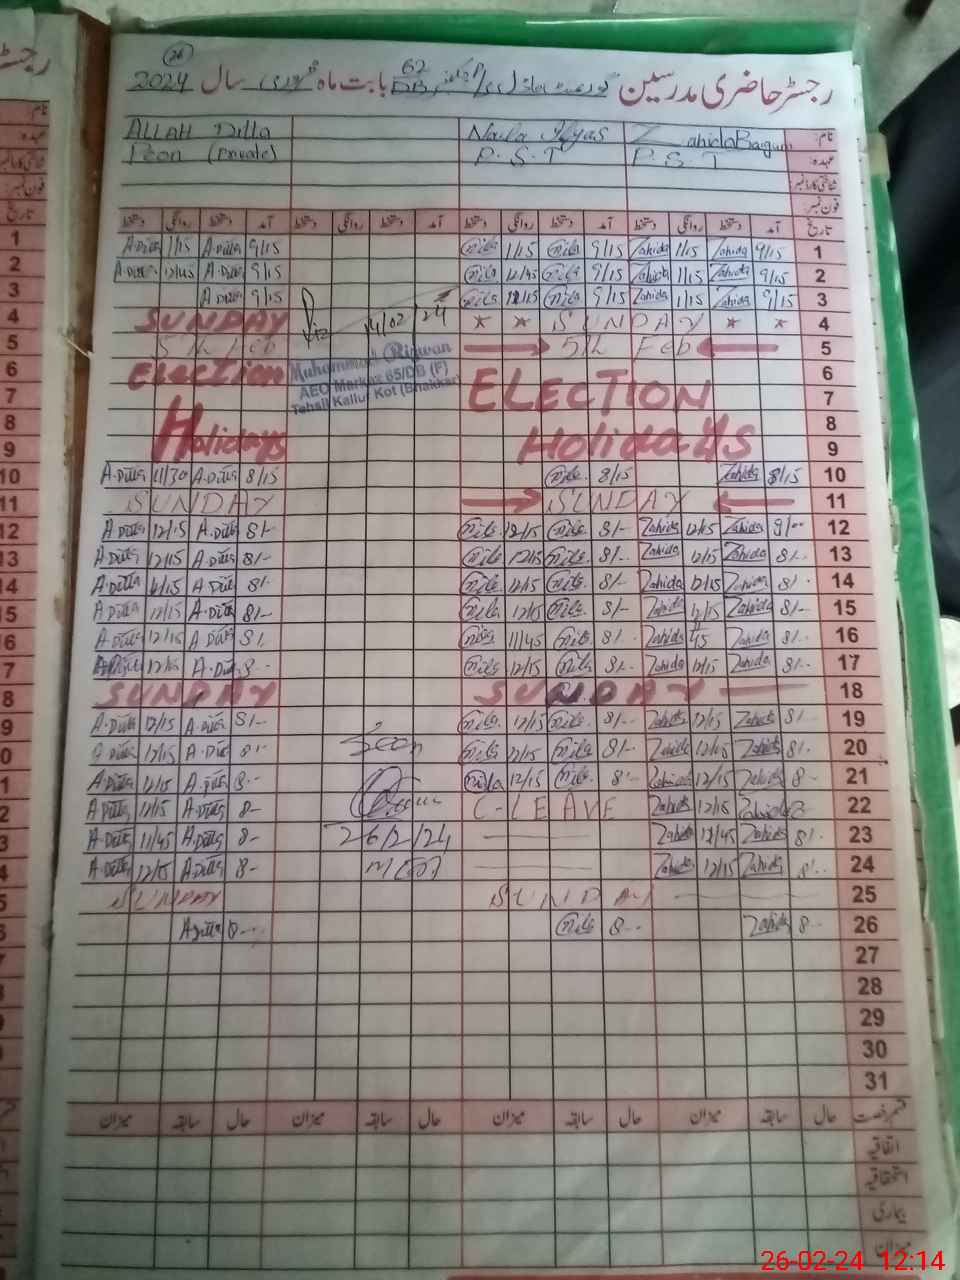 26
رجسٹر حاضری مدرسین گورنمنٹ ماڈل 62 DB بابت ماہ فروری سال 2024
نام: Zahida Bagum Naila Ilyas ALLAH Ditta
عہدہ: P.S.T P.S.T Peon (private)
شناختی کارڈ نمبر:
فون نمبر:
تاریخ آمد دستخط روانگی دستخط آمد دستخط روانگی دستخط آمد دستخط روانگی دستخط آمد دستخط روانگی دستخط
1 9/15 Zahida 1/15 Zahida 9/15 Naila 1/15 Naila 9/15 A.Ditta 1/15 A.Ditta
2 9/15 Zahida 1/15 Zahida 9/15 Naila 12/45 Naila 9/15 A.Ditta 12/45 A.Ditta
3 9/15 Zahida 1/15 Zahida 9/15 Naila Naila 9/15 A.Ditta
4 * * SUNDAY * * 14/02/24 SUNDAY
5 5th Feb 5th Feb
Muhammad Rizwan
AEO Markaz 65/DB (F)
Tehsil Kallur Kot (Bhakkar)
6 ELECTION Election
7
8 Holidays Holidays
9
10 8/15 Zahida 8/15 Naila 8/15 A.Ditta 11/30 A.Ditta
11 SUNDAY SUNDAY
12 9/-- Zahida 12/15 Zahida 8/- Naila 12/15 Naila 8/- A.Ditta 12/15 A.Ditta
13 8/- Zahida 12/15 Zahida 8/- Naila 12/15 Naila 8/- A.Ditta 12/15 A.Ditta
14 8/- Zahida 12/15 Zahida 8/- Naila 12/15 Naila 8/- A.Ditta 12/15 A.Ditta
15 8/- Zahida 12/15 Zahida 8/- Naila 12/15 Naila 8/- A.Ditta 12/15 A.Ditta
16 8/- Zahida 11/45 Zahida 8/- Naila 11/45 Naila 8/- A.Ditta 12/15 A.Ditta
17 8/- Zahida 12/15 Zahida 8/- Naila 12/15 Naila 8-- A.Ditta 12/15 A.Ditta
18 SUNDAY SUNDAY
19 8/- Zahida 12/15 Zahida 8/- Naila 12/15 Naila 8/- A.Ditta 12/15 A.Ditta
20 8/- Zahida 12/15 Zahida 8/- Naila 12/15 Naila Seen 8/- A.Ditta 12/15 A.Ditta
21 8-- Zahida 12/15 Zahida 8/- Naila 12/15 Naila 8-- A.Ditta 12/15 A.Ditta
22 8-- Zahida 12/15 Zahida C-LEAVE 8-- A.Ditta 12/15 A.Ditta
23 8/- Zahida 11/45 Zahida 26/2/24 8-- A.Ditta 11/45 A.Ditta
24 8/- Zahida 12/15 Zahida 8-- A.Ditta 12/15 A.Ditta
25 SUNDAY SUNDAY
26 8-- Zahida 8-- Naila 8-- A.Ditta
27
28
29
30
31
قسم رخصت حال سابقہ میزان حال سابقہ میزان حال سابقہ میزان حال سابقہ میزان
اتفاقیہ
استحقاقیہ
بیماری
میزان
26-02-24 12:14